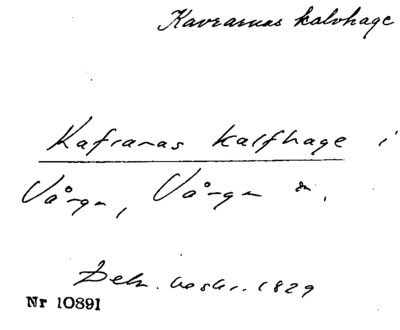 Kavrarnas kalvhage
Kafrarnas kalfhage i
Vånga, Vånga sn.
1829
Nr 10891